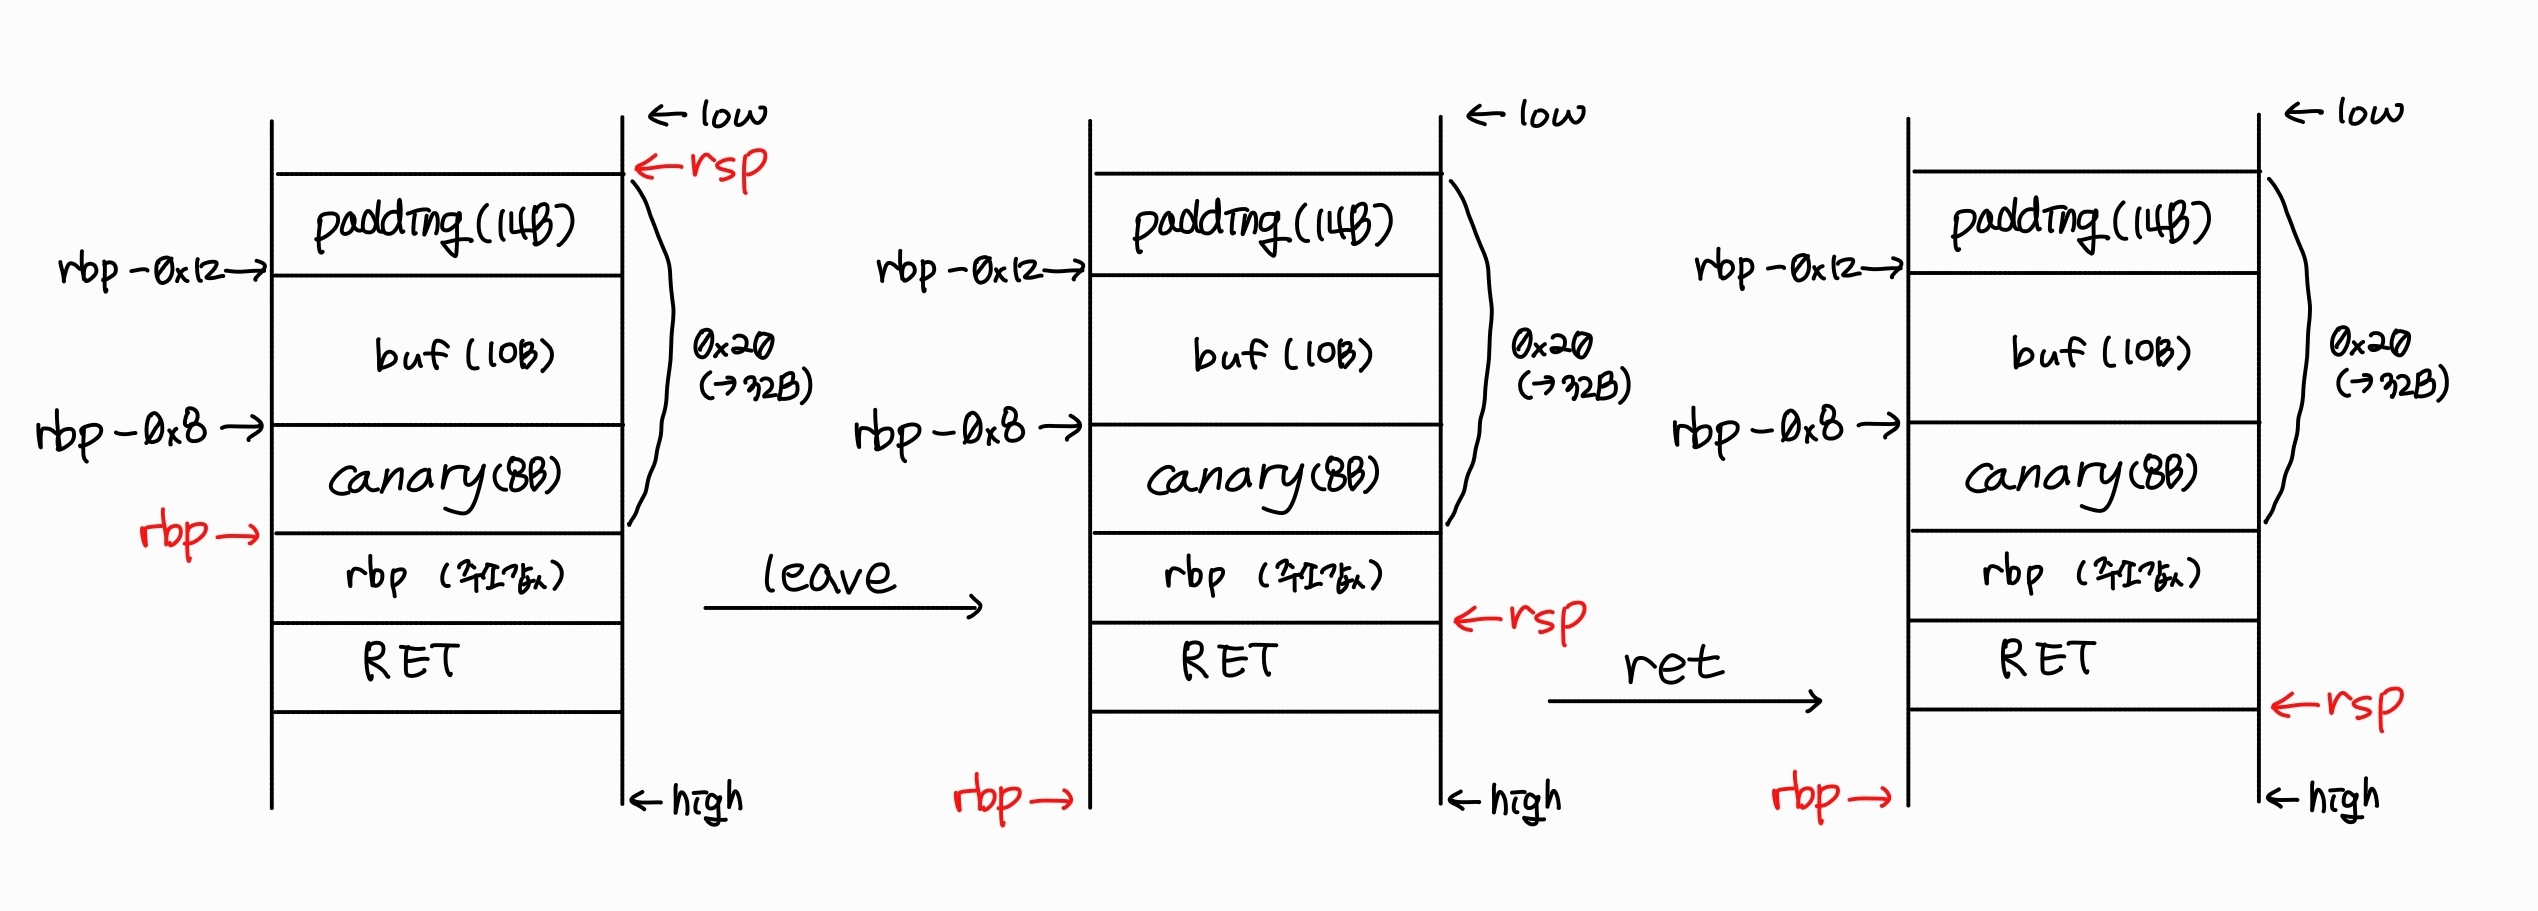 ← low
← rsp
padding (14B)
rbp - 0x12 →
buf (10B)
0x20
(→ 32B)
rbp - 0x8 →
canary (8B)
rbp →
rbp (주솟값)
RET
← high
leave
← low
padding (14B)
rbp - 0x12 →
buf (10B)
0x20
(→ 32B)
rbp - 0x8 →
canary (8B)
rbp (주솟값)
← rsp
RET
rbp →
← high
ret
← low
padding (14B)
rbp - 0x12 →
buf (10B)
0x20
(→ 32B)
rbp - 0x8 →
canary (8B)
rbp (주솟값)
RET
← rsp
rbp →
← high